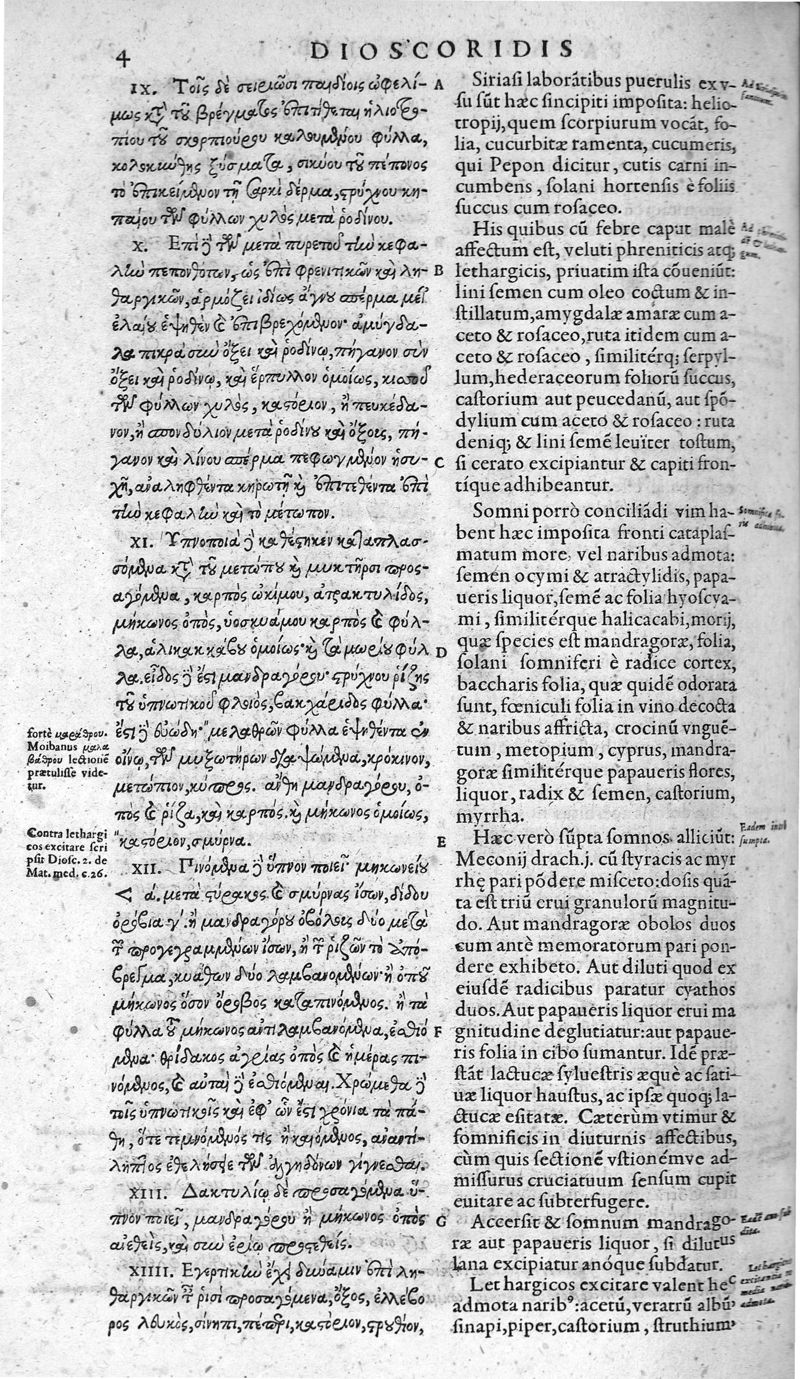 4 DIOSCORIDIS
IX. Τοῖς δὲ σειριῶσι παιδίοις ὠφελί-
μως κατὰ τοῦ βρέγματος ἐπιτίθεται ἡλιοτρο-
πίου τοῦ σκορπιούρου καλουμένου φύλλα,
κολοκύνθης ξύσματα, σικύου τοῦ πέπονος
τὸ ἐπικείμενον τῇ σαρκὶ δέρμα, στρύχνου κη-
παίου τῶν φύλλων χυλὸς μετὰ ῥοδίνου.
X. Ἐπὶ δὲ τῶν μετὰ πυρετοῦ τὴν κεφα-
λὴν πεπονθότων, ὡς ἐπὶ φρενιτικῶν καὶ λη-
θαργικῶν, ἁρμόζει ἰδίως ἄγνου σπέρμα μετ'
ἐλαίου ἑψηθὲν καὶ ἐπιβρεχόμενον· ἀμύγδα-
λα πικρὰ σὺν ὄξει καὶ ῥοδίνῳ, πήγανον σὺν
ὄξει καὶ ῥοδίνῳ, καὶ ἕρπυλλον ὁμοίως, κισσοῦ
τῶν φύλλων χυλὸς, καστόριον, ἢ πευκέδα-
νον, ἢ σπονδύλιον μετὰ ῥοδίνου καὶ ὄξους, πή-
γανον καὶ λίνου σπέρμα πεφωγμένον ἡσυ-
χῆ, ἀναληφθέντα κηρωτῇ καὶ ἐπιτεθέντα ἐπὶ
τὴν κεφαλὴν καὶ τὸ μέτωπον.
XI. Ὑπνοποιὰ δὲ καθέστηκεν καταπλασ-
σόμενα κατὰ τοῦ μετώπου καὶ μυκτῆρσι προς-
αγόμενα, καρπὸς ὠκίμου, ἀτρακτυλίδος,
μήκωνος ὀπὸς, ὑοσκυάμου καρπὸς καὶ φύλ-
λα, ἁλικακκάβου ὁμοίως· καὶ τὰ μωρίου φύλ
λα. εἶδος δὲ ἐστὶ μανδραγόρου· στρύχνου ῥίζης
τοῦ ὑπνωτικοῦ φλοιὸς, βακχάριδος φύλλα·
ἐστὶ δὲ εὐώδη· "μελαθρῶν φύλλα ἑψηθέντα ἐν
οἴνῳ, τῶν μυξωτήρων διαψώμενα, κρόκινον,
μετώπιον, κύπρος. ἄνθη μανδραγόρου, ὀ-
πὸς καὶ ῥίζα, καὶ καρπὸς. καὶ μήκωνος ὁμοίως,
"καστόριον, σμύρνα.
XII. Πινόμενα δὲ ὕπνον ποιεῖ· μηκωνείου
< ά. μετὰ στύρακος καὶ σμύρνας ἴσων, δίδου
ὀρόβια γ'. ἢ μανδραγόρου ὀβόλοις δύο μετὰ
τῶν προγεγραμμένων ἴσων, ἢ τῶν ῥιζῶν τὸ ἀπό-
βρεγμα, κυάθων δύο λαμβανομένων· ἢ ὀποῦ
μήκωνος ὅσον ὄροβος καταπινόμενος. ἢ τὰ
φύλλα τοῦ μήκωνος ἀντιλαμβανόμενα, ἐσθιό
μενα· θρίδακος ἀγρίας ὀπὸς καὶ ἡμέρας πι-
νόμενος, καὶ αὐταὶ δὲ ἐσθιόμεναι. Χρώμεθα δὲ
τοῖς ὑπνωτικοῖς καὶ ἐφ' ὧν ἐστὶ χρόνια τὰ πά-
θη, ὅτε τεμνόμενός τις ἢ καιόμενος, ἀναντί-
ληπτος ἐθελήσειε τῶν ἀλγηδόνων γίγνεσθαι.
XIII. Δακτυλίῳ δὲ προσαγόμενα ὕ-
πνον ποιεῖ, μανδραγόρου ἢ μήκωνος ὀπὸς
ἀνεθεὶς, καὶ σὺν ἐρίῳ προστεθείς.
XIIII. Ἐγερτικὴν ἔχει δύναμιν ἐπὶ λη-
θαργικῶν τῇ ῥισὶ προσαγόμενα, ὄξος, ἐλλέβο
ρος λευκὸς, σίνηπι, πέπερι, καστόριον, στρούθιον,
fortè μαράθρου.
Moibanus μαλα
βάθρου lectionē
prætulisse vide-
tur.
Contra lethargi
cos excitare scri
psit Diosc. 2. de
Mat. med. c. 26.
A
B
C
D
E
F
G
Siriasi laborātibus puerulis ex v-
su sūt hæc sincipiti imposita: helio-
tropij, quem scorpiurum vocāt, fo-
lia, cucurbitæ ramenta, cucumeris,
qui Pepon dicitur, cutis carni in-
cumbens, solani hortensis è foliis
succus cum rosaceo.
His quibus cū febre caput malè
affectum est, veluti phreniticis atq;
lethargicis, priuatim ista cōueniūt:
lini semen cum oleo coctum & in-
stillatum, amygdalæ amaræ cum a-
ceto & rosaceo, ruta itidem cum a-
ceto & rosaceo, similitérq; serpyl-
lum, hederaceorum foliorū succus,
castorium aut peucedanū, aut spō-
dylium cum aceto & rosaceo : ruta
deniq; & lini semē leuiter tostum,
si cerato excipiantur & capiti fron-
tíque adhibeantur.
Somni porrò conciliādi vim ha-
bent hæc imposita fronti cataplas-
matum more, vel naribus admota:
semen ocymi & atractylidis, papa-
ueris liquor, semē ac folia hyoscya-
mi, similitérque halicacabi, morij,
quæ species est mandragoræ, folia,
solani somniferi è radice cortex,
baccharis folia, quæ quidē odorata
sunt, fœniculi folia in vino decocta
& naribus affricta, crocinū vngué-
tum, metopium, cyprus, mandra-
goræ similitérque papaueris flores,
liquor, radix & semen, castorium,
myrrha.
Hæc verò sūpta somnos alliciūt:
Meconij drach. j. cū styracis ac myr
rhę pari pōdere misceto: dosis quā-
ta est triū erui granulorū magnitu-
do. Aut mandragoræ obolos duos
cum antè memoratorum pari pon-
dere exhibeto. Aut diluti quod ex
eiusdē radicibus paratur cyathos
duos. Aut papaueris liquor erui ma
gnitudine deglutiatur: aut papaue-
ris folia in cibo sumantur. Idē præ-
stāt lactucæ syluestris æquè ac sati-
uæ liquor haustus, ac ipsæ quoq; la-
ctucæ esitatæ. Cæterùm vtimur &
somnificis in diuturnis affectibus,
cùm quis sectionē vstionémve ad-
missurus cruciatuum sensum cupit
euitare ac subterfugere.
Accersit & somnum mandrago-
ræ aut papaueris liquor, si dilutus
lana excipiatur anóque subdatur.
Lethargicos excitare valent hęc
admota narib⁹: acetū, veratrū albū,
sinapi, piper, castorium, struthium,
Eadem intrò
sumpta.